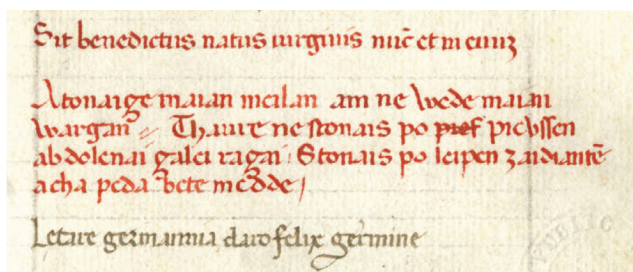 Sit benedictus natus virginis nūc et in euuȝ
Atonaige maian meilan am ne wede maian
wargan = Thaure ne stonais po pref picussen
abdolenai galei ragai Stonais po leipen zaidiantē
acha peda bete medde
Letare germannia claro felix germine
PUBLIC